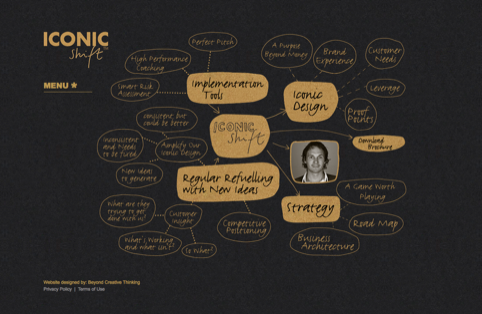 ICONIC
shift
MENU ★
Perfect Pitch
High Performance
Coaching
Smart Risk
Assessment
Implementation
Tools
A Purpose
Beyond Money
Brand
Experience
Customer
Needs
Leverage
Iconic
Design
Proof
Points
Download
Brochure
ICONIC
shift
Consistent but
could be better
Inconsistent
and Needs
to be fixed
Amplify Our
Iconic Design
New ideas
to generate
Regular Refuelling
with New Ideas
What are they
trying to get
done with us?
Customer
Insight
What's Working
and what isn't?
So What?
Competitive
Positioning
Strategy
A Game Worth
Playing
Road Map
Business
Architecture
Website designed by: Beyond Creative Thinking
Privacy Policy | Terms of Use